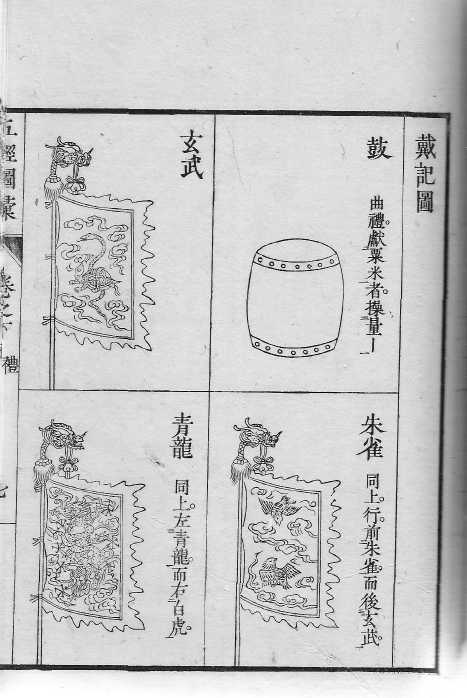 戴記圖
鼓
曲禮。獻粟米者。操量丨
朱雀
同上。行。前朱雀。而後玄武。
玄武
青龍
同上。左青龍。而右白虎。
五經圖彙
卷之下
禮
七